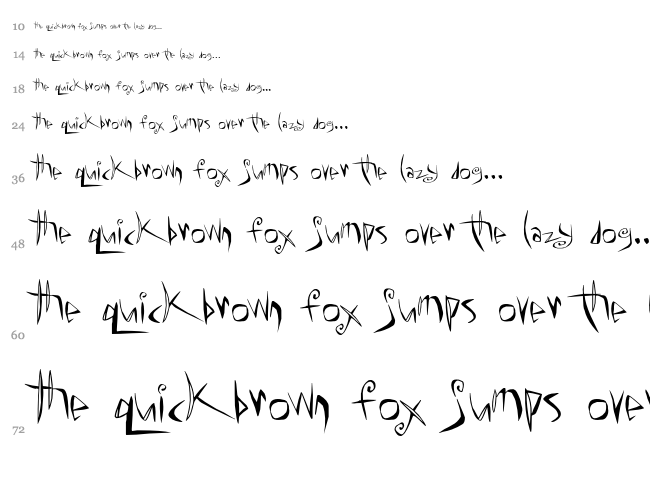 10 the quick brown fox jumps over the lazy dog...
14 the quick brown fox jumps over the lazy dog...
18 the quick brown fox jumps over the lazy dog...
24 the quick brown fox jumps over the lazy dog...
36 the quick brown fox jumps over the lazy dog...
48 the quick brown fox jumps over the lazy dog..
60 the quick brown fox jumps over the
72 the quick brown fox jumps over